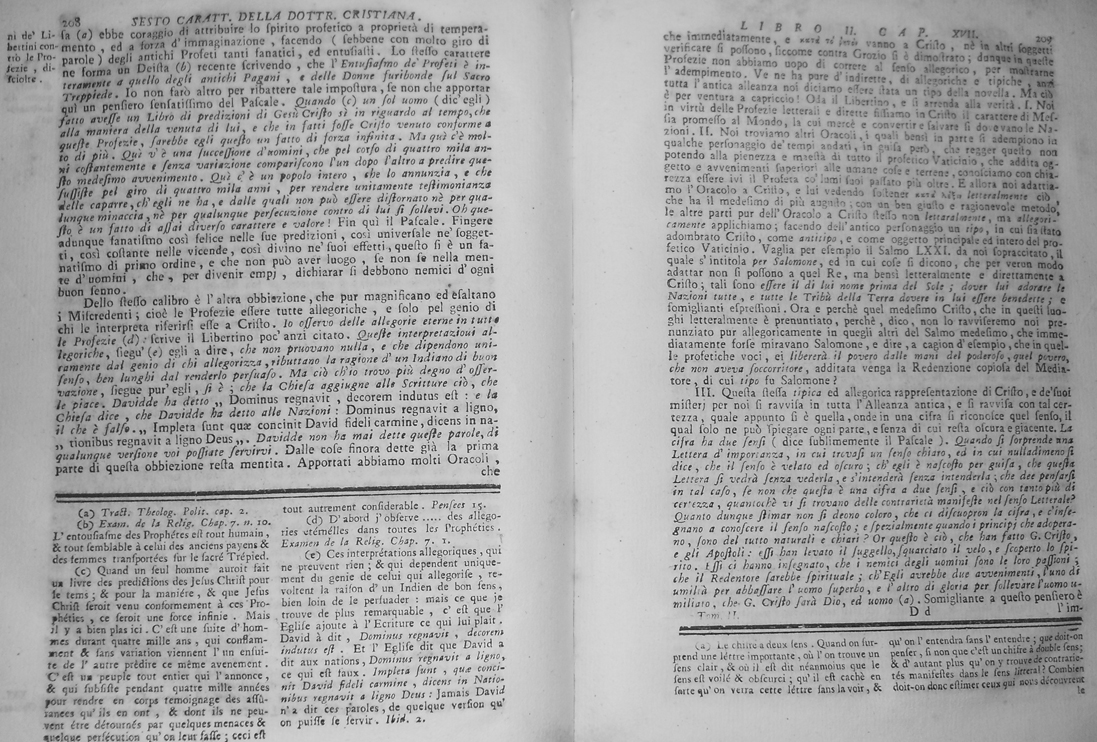 208 SESTO CARATT. DELLA DOTTR. CRISTIANA.
ni de' Li-
bertini con-
tro le Pro-
fezie, di-
sciolte.
sa (a) ebbe coraggio di attribuire lo spirito profetico a proprietà di tempera-
mento, ed a forza d'immaginazione, facendo (sebbene con molto giro di
parole) degli antichi Profeti tanti fanatici, ed entusiasti. Lo stesso carattere
ne forma un Deista (b) recente scrivendo, che l'Entusiasmo de' Profeti è in-
teramente a quello degli antichi Pagani, e delle Donne furibonde sul Sacro
Treppiede. Io non farò altro per ribattere tale impostura, se non che apportar
quì un pensiero sensatissimo del Pascale. Quando (c) un sol uomo (dic'egli)
fatto avesse un Libro di predizioni di Gesù Cristo sì in riguardo al tempo, che
alla maniera della venuta di lui, e che in fatti fosse Cristo venuto conforme a
queste Profezie, sarebbe egli questo un fatto di forza infinita. Ma quì c'è mol-
to di più. Quì v'è una successione d'uomini, che pel corso di quattro mila an-
ni costantemente e senza variazione compariscono l'un dopo l'altro a predire que-
sto medesimo avvenimento. Quì c'è un popolo intero, che lo annunzia, e che
sussiste pel giro di quattro mila anni, per rendere unitamente testimonianza
delle caparre, ch'egli ne ha, e dalle quali non può essere distornato nè per qua-
lunque minaccia, nè per qualunque persecuzione contro di lui si sollevi. Oh que-
sto è un fatto di assai diverso carattere e valore! Fin quì il Pascale. Fingere
adunque fanatismo così felice nelle sue predizioni, così universale ne' sogget-
ti, così costante nelle vicende, così divino ne' suoi effetti, questo si è un fa-
natismo di primo ordine, e che non può aver luogo, se non se nella men-
te d'uomini, che, per divenir empj, dichiarar si debbono nemici d'ogni
buon senno.
Dello stesso calibro è l'altra obbiezione, che pur magnificano ed esaltano
i Miscredenti; cioè le Profezie essere tutte allegoriche, e solo pel genio di
chi le interpreta riferirsi esse a Cristo. Io osservo delle allegorie eterne in tutte
le Profezie (d): scrive il Libertino poc'anzi citato. Queste interpretazioni al-
legoriche, siegu' (e) egli a dire, che non pruovano nulla, e che dipendono uni-
camente dal genio di chi allegorizza, ributtano la ragione d'un Indiano di buon
senso, ben lunghi dal renderlo persuaso. Ma ciò ch'io trovo più degno d'osser-
vazione, siegue pur'egli, si è; che la Chiesa aggiugne alle Scritture ciò, che
le piace. Davidde ha detto „ Dominus regnavit, decorem indutus est: e la
Chiesa dice, che Davidde ha detto alle Nazioni: Dominus regnavit a ligno,
il che è falso. „ Impleta sunt quæ concinit David fideli carmine, dicens in na-
„ tionibus regnavit a ligno Deus „. Davidde non ha mai dette queste parole, di
qualunque versione voi possiate servirvi. Dalle cose finora dette già la prima
parte di questa obbiezione resta mentita. Apportati abbiamo molti Oracoli,
che
(a) Tract. Theolog. Polit. cap. 2.
(b) Exam. de la Relig. Chap. 7. n. 10.
L'entousiasme des Prophétes est tout humain,
& tout semblable à celui des anciens payens &
des femmes transportées sur le sacré Trépied.
(c) Quand un seul homme auroit fait
un livre des predictions des Jesus Christ pour
le tems; & pour la maniére, & que Jesus
Christ seroit venu conformement à ces Pro-
phéties, ce seroit une force infinie. Mais
il y a bien plus ici. C'est une suite d'hom-
mes durant quatre mille ans, qui constam-
ment & sans variation viennent l'un ensui-
te de l'autre prédire ce même avenement.
C'est un peuple tout entier qui l'annonce,
& qui subsiste pendant quatre mille années
pour rendre en corps temoignage des assû-
rances qu'ils en ont, & dont ils ne peu-
vent être détournés par quelques menaces &
quelque persécution qu'on leur fasse; ceci est
tout autrement considerable. Pensees 15.
(d) D'abord j'observe ..... des allego-
ries eternélles dans toutes les Prophéties.
Examen de la Relig. Chap. 7. 1.
(e) Ces interprétations allegoriques, qui
ne peuvent rien; & qui dependent unique-
ment du genie de celui qui allegorise, re-
voltent la raison d'un Indien de bon sens,
bien loin de le persuader: mais ce que je
trouve de plus remarquable, c'est que l'
Eglise ajoute à l'Ecriture ce qui lui plait.
David à dit, Dominus regnavit, decorem
indutus est. Et l'Eglise dit que David a
dit aux nations, Dominus regnavit a ligno,
ce qui est faux. Impleta sunt, quæ conci-
nit David fideli carmine, dicens in Natio-
nibus regnavit a ligno Deus: Jamais David
n'a dit ces paroles, de quelque version qu'
on puisse se servir. Ibid. 2.
LIBRO II. CAP. XVII. 209
che immediatamente, e vanno a Cristo, nè in altri soggetti
verificare si possono, siccome contra Grozio si è dimostrato; dunque in queste
Profezie non abbiamo uopo di correre al senso allegorico, per mostrarne
l'adempimento. Ve ne ha pure d'indirette, di allegoriche e tipiche, anzi
tutta l'antica alleanza noi diciamo essere stata un tipo della novella. Ma ciò
è per ventura a capriccio! Oda il Libertino, e si arrenda alla verità. I. Noi
in virtù delle Profezie letterali e dirette fissiamo in Cristo il carattere di Mes-
sia promesso al Mondo, la cui mercè e convertire e salvare si doveano le Na-
zioni. II. Noi troviamo altri Oracoli, i quali bensì in parte si adempiono in
qualche personaggio de' tempi andati, in guisa però, che regger questo non
potendo alla pienezza e maestà di tutto il profetico Vaticinio, che addita og-
getto e avvenimenti superiori alle umane cose e terrene, conosciamo con chia-
rezza essere ivi il Profeta co' lumi suoi passato più oltre. E allora noi adattia-
mo l'Oracolo a Cristo, e lui vedendo sostener letteralmente ciò
che ha il medesimo di più augusto; con un ben giusto e ragionevole metodo,
le altre parti pur dell'Oracolo a Cristo stesso non letteralmente, ma allegori-
camente applichiamo; facendo dell'antico personaggio un tipo, in cui sia stato
adombrato Cristo, come antitipo, e come oggetto principale ed intero del pro-
fetico Vaticinio. Vaglia per esempio il Salmo LXXI. da noi sopraccitato, il
quale s'intitola per Salomone, ed in cui cose si dicono, che per verun modo
adattar non si possono a quel Re, ma bensì letteralmente e direttamente a
Cristo; tali sono essere il di lui nome prima del Sole; dover lui adorare le
Nazioni tutte, e tutte le Tribù della Terra dovere in lui essere benedette; e
somiglianti espressioni. Ora e perchè quel medesimo Cristo, che in questi luo-
ghi letteralmente è prenunziato, perchè, dico, non lo ravviseremo noi pre-
nunziato pur allegoricamente in quegli altri del Salmo medesimo, che imme-
diatamente forse miravano Salomone, e dire, a cagion d'esempio, che in quel-
le profetiche voci, ei libererà il povero dalle mani del poderoso, quel povero,
che non aveva soccorritore, additata venga la Redenzione copiosa del Media-
tore, di cui tipo fu Salomone?
III. Questa stessa tipica ed allegorica rappresentazione di Cristo, e de' suoi
misterj per noi si ravvisa in tutta l'Alleanza antica, e si ravvisa con tal cer-
tezza, quale appunto si è quella, onde in una cifra si riconosce quel senso, il
qual solo ne può spiegare ogni parte, e senza di cui resta oscura e giacente. La
cifra ha due sensi (dice sublimemente il Pascale). Quando si sorprende una
Lettera d'importanza, in cui trovasi un senso chiaro, ed in cui nulladimeno si
dice, che il senso è velato ed oscuro; ch'egli è nascosto per guisa, che questa
Lettera si vedrà senza vederla, e s'intenderà senza intenderla; che dee pensarsi
in tal caso, se non che questa è una cifra a due sensi, e ciò con tanto più di
certezza, quantochè vi si trovano delle contrarietà manifeste nel senso Letterale?
Quanto dunque stimar non si deono coloro, che ci discuopron la cifra, e c'inse-
gnano a conoscere il senso nascosto; e spezialmente quando i principj che adopera-
no, sono del tutto naturali e chiari? Or questo è ciò, che han fatto G. Cristo,
e gli Apostoli: essi han levato il suggello, squarciato il velo, e scoperto lo spi-
rito. Essi ci hanno insegnato, che i nemici degli uomini sono le loro passioni;
che il Redentore sarebbe spirituale; ch'Egli avrebbe due avvenimenti, l'uno di
umilià per abbassare l'uomo superbo, e l'altro di gloria per sollevare l'uomo u-
miliato, che G. Cristo sarà Dio, ed uomo (a). Somigliante a questo pensiero è
Tom. II. D d l'im-
(a) Le chifre a deux sens. Quand on sur-
prend une léttre importante, où l'on trouve un
sens clair, & où il est dit néanmoius que le
sens est voilé & obscurci; qu'il est caché en
sorte qu'on verra cette léttre sans la voir, &
qu'on l'entendra sans l'entendre; que doit-on
penser, si non que c'est un chifre à double sens;
& d'autant plus qu'on y trouve de contrarie-
tés manifestes dans le sens litteral? Combien
doit-on donc estimer ceux qui nous découvrent
le